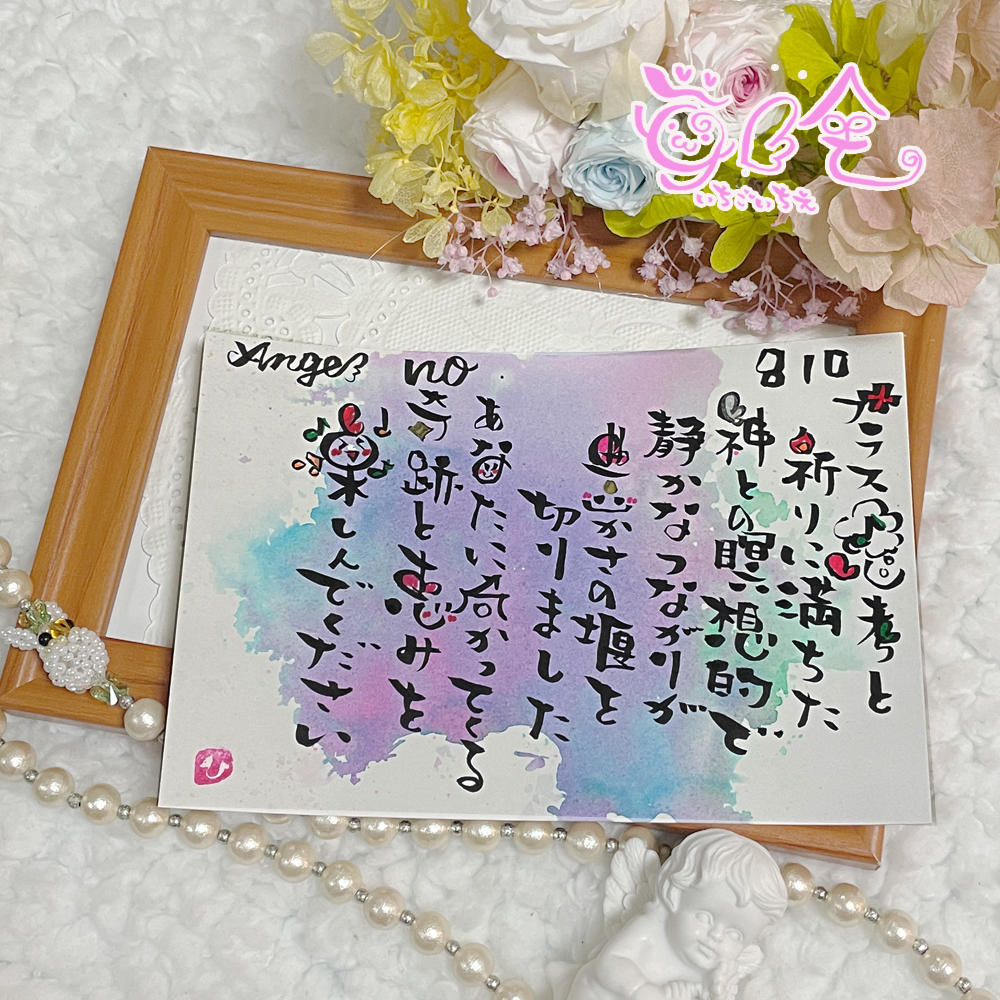 Angel no 810
プラス思考と
祈りに満ちた
神との瞑想的で
静かなつながりが
豊かさの堰を
切りました
あなたに向かってくる
奇跡と恵みを
楽しんでください
いちごいちえ